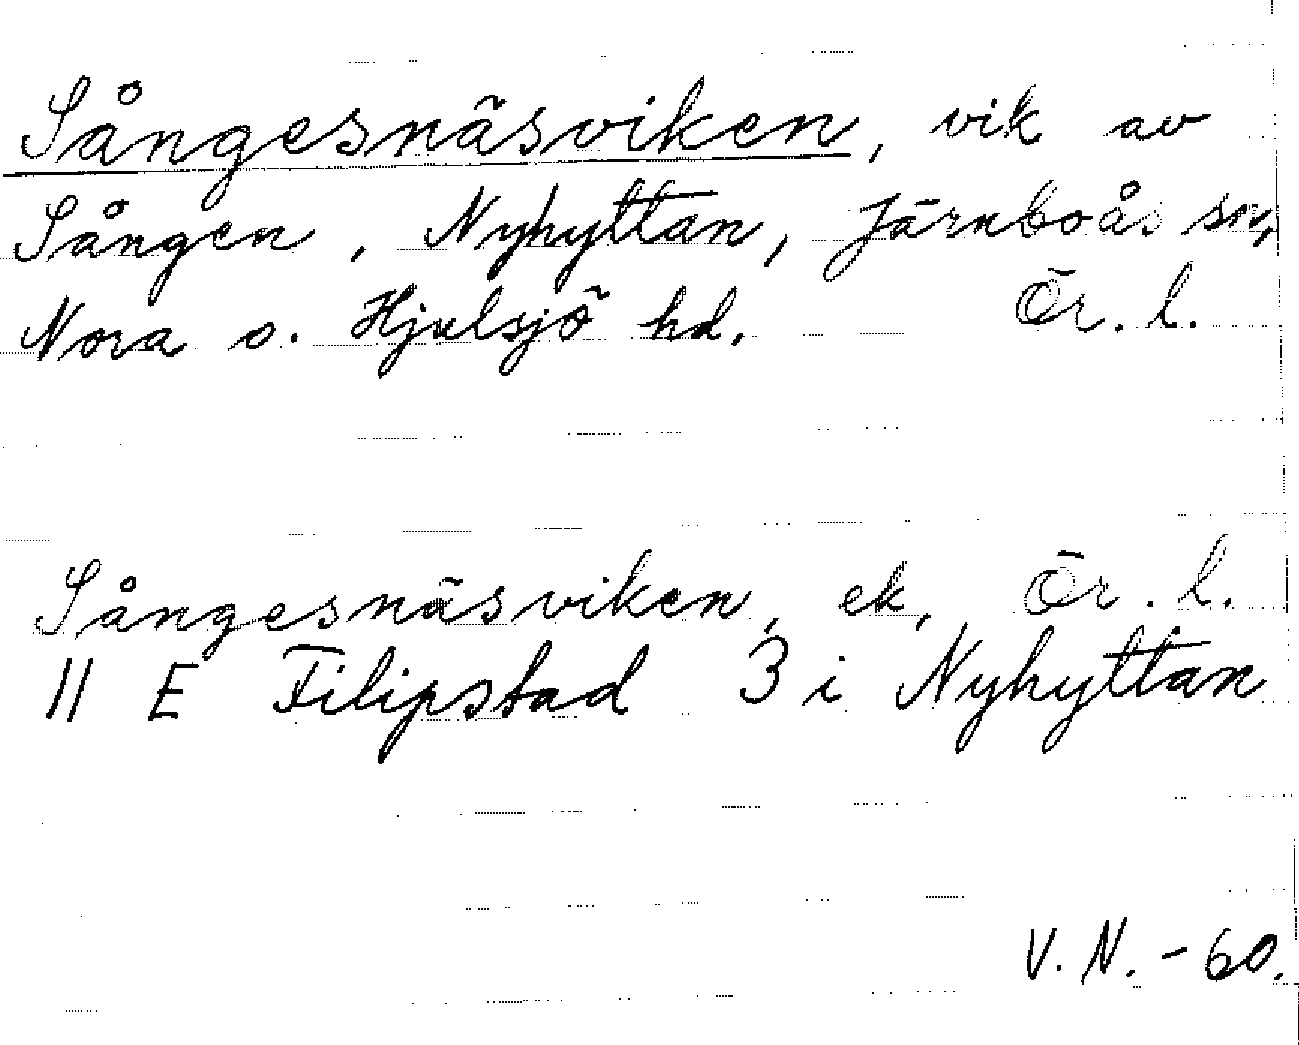 Sångesnäsviken, vik av
Sången, Nyhyttan, Järnboås sn,
Nora o. Hjulsjö hd. Ör. l.
Sångesnäsviken, ek, Ör. l.
11 E Filipstad 3 i Nyhyttan
V. N. - 60.